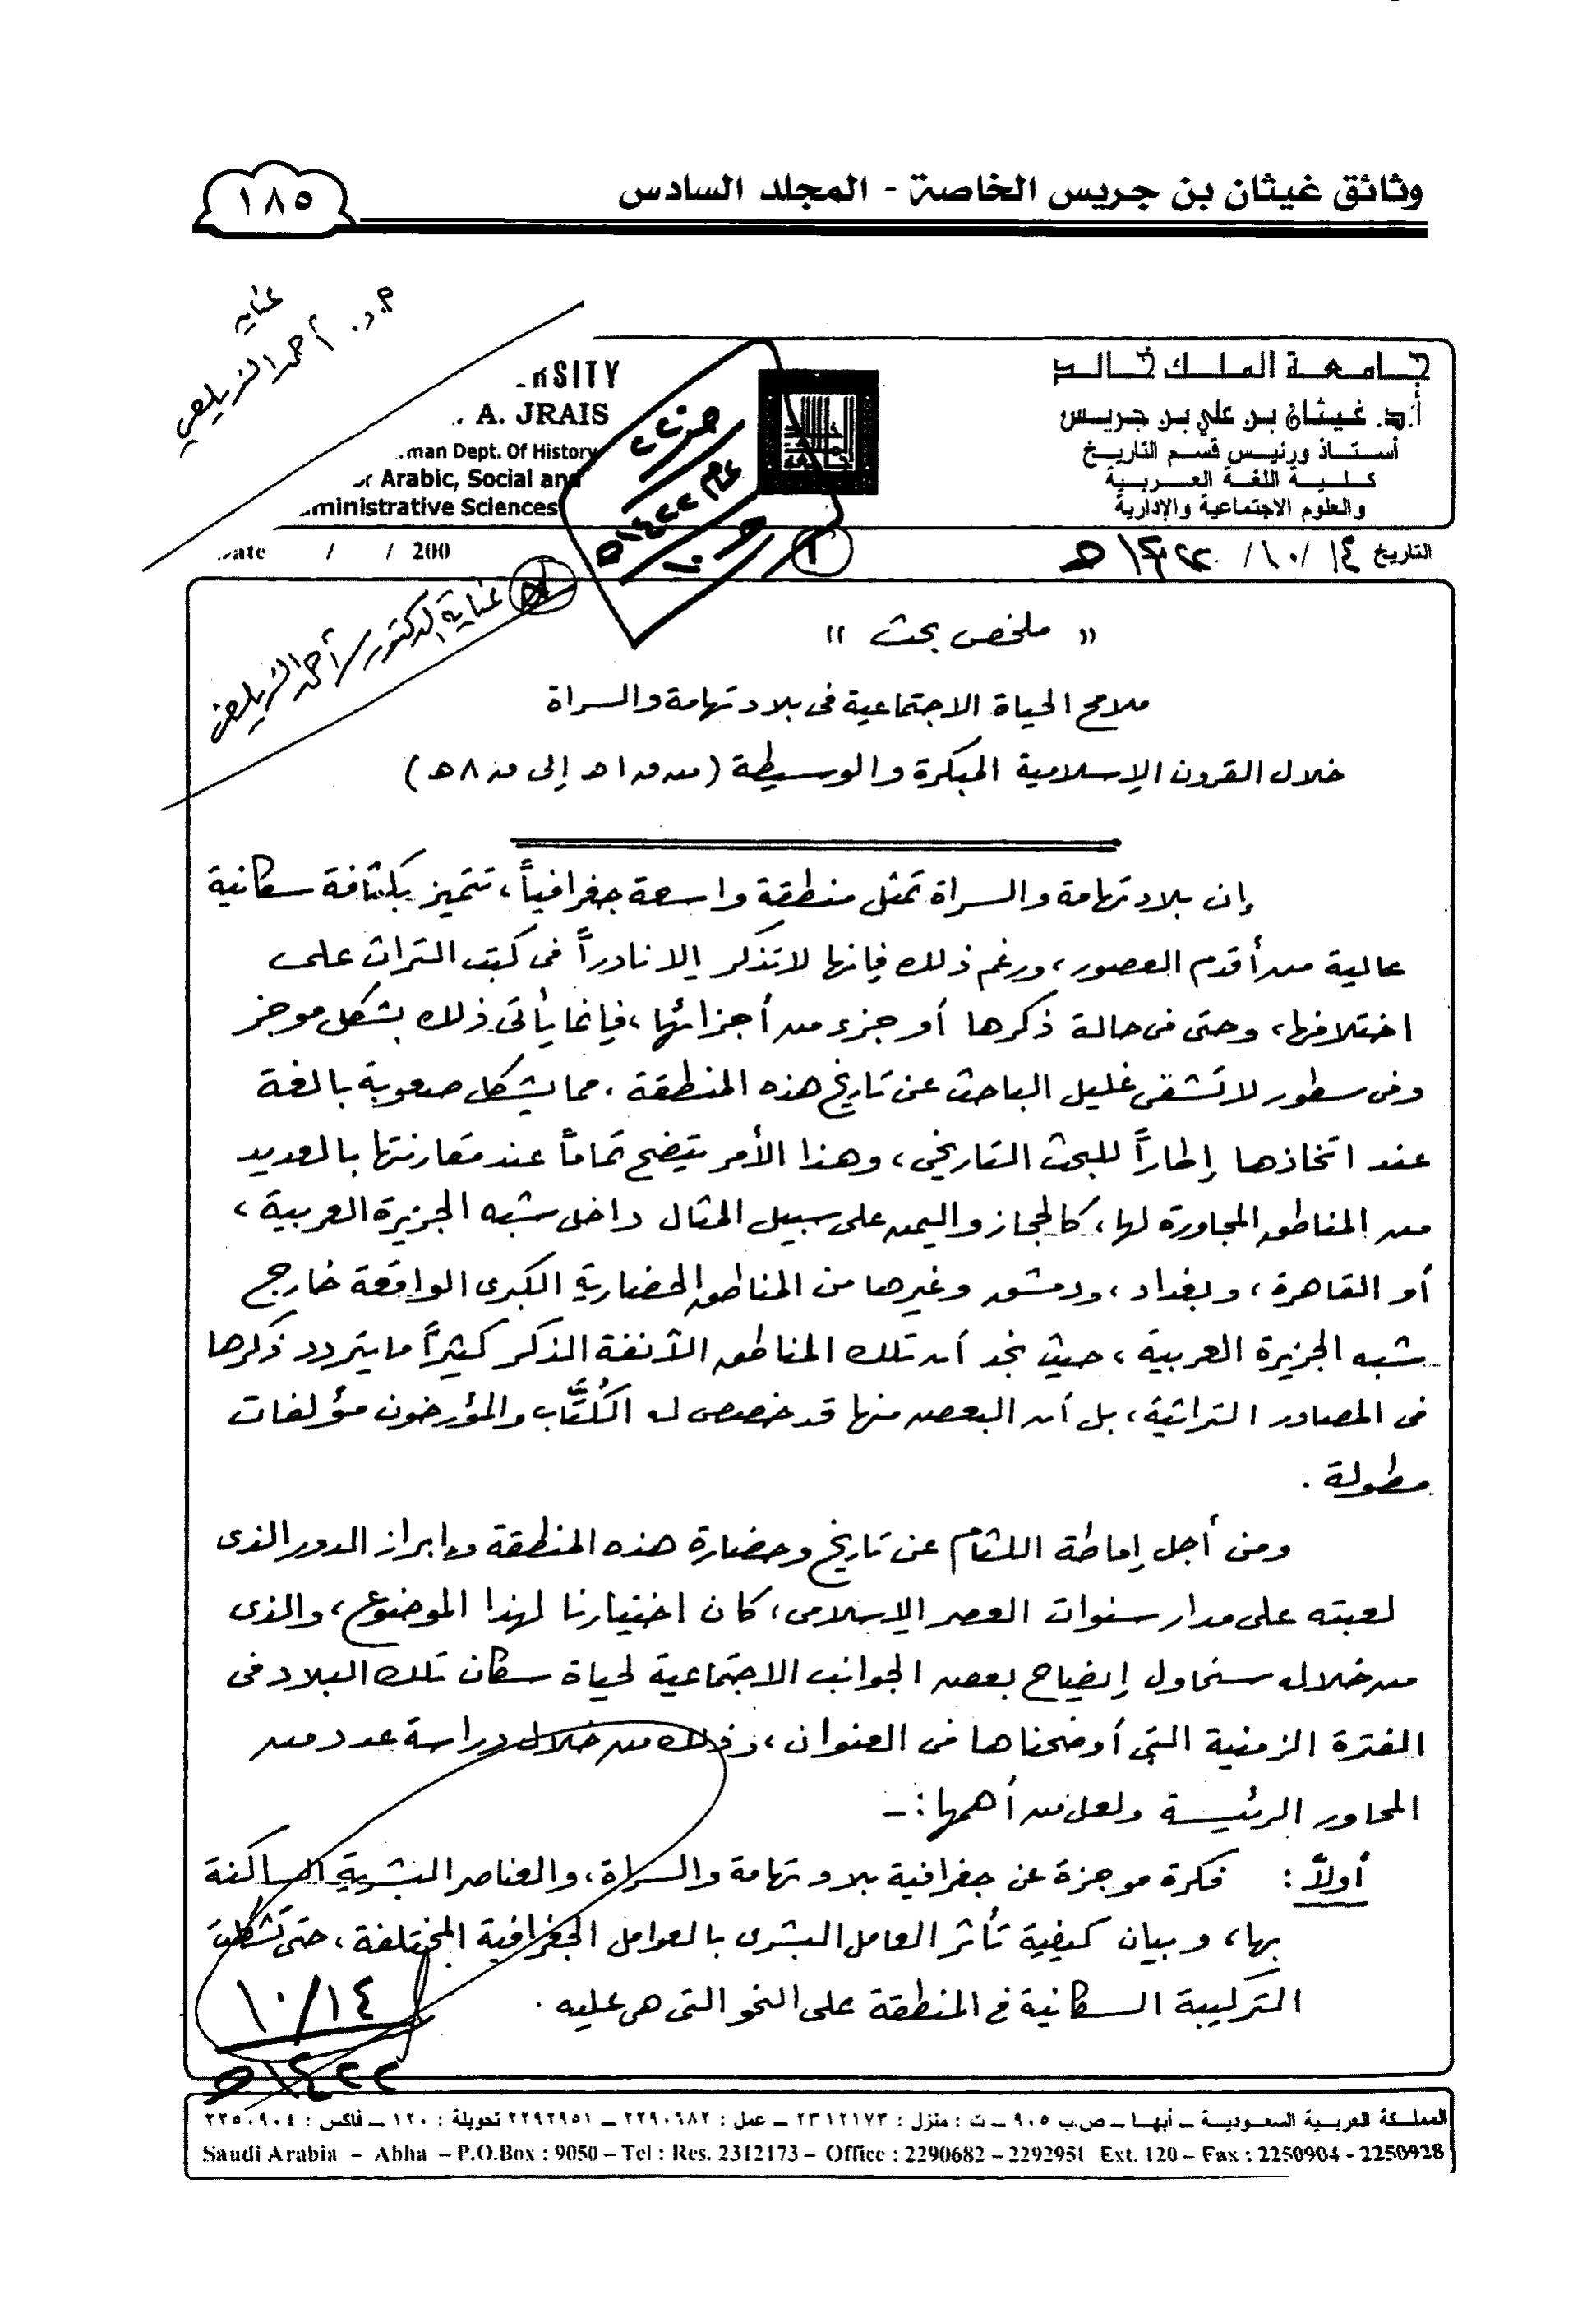 وثائق غيثان بن جريس الخاصة - المجلد السادس
١٨٥
عناية
أ.د. أحمد الزيلعي
جامعة الملك خالد
أ.د. غيثان بن علي بن جريس
أستاذ ورئيس قسم التاريخ
كلية اللغة العربية
والعلوم الاجتماعية والإدارية
RSITY
. A. JRAIS
man Dept. Of History
r Arabic, Social and
ministrative Sciences
عام ١٤٢٢هـ
التاريخ ١٤ / ١٠ / ١٤٢٢هـ
ate / / 200
عناية الدكتور / أحمد الزيلعي
" ملخص بحث "
ملامح الحياة الاجتماعية فى بلاد تهامة والسراة
خلال القرون الإسلامية المبكرة والوسيطة (من ق١هـ إلى ق٨هـ)
إن بلاد تهامة والسراة تمثل منطقة واسعة جغرافياً، تتميز بكثافة سكانية
عالية من أقدم العصور، ورغم ذلك فإنها لا تذكر إلا نادراً فى كتب التراث على
اختلافها، وحتى فى حالة ذكرها أو جزء من أجزائها، فإنما يأتى ذلك بشكل موجز
وفى سطور لا تشفى غليل الباحث عن تاريخ هذه المنطقة. مما يشكل صعوبة بالغة
عند اتخاذها إطاراً للبحث التاريخى، وهذا الأمر يتضح تماماً عند مقارنتها بالعديد
من المناطق المجاورة لها، كالحجاز واليمن على سبيل المثال داخل شبه الجزيرة العربية،
أو القاهرة، وبغداد، ودمشق وغيرها من المناطق الحضارية الكبرى الواقعة خارج
شبه الجزيرة العربية، حيث نجد أن تلك المناطق الآنفة الذكر كثيراً ما يتردد ذكرها
فى المصادر التراثية، بل أن البعض منها قد خصص له الكُتَّاب والمؤرخون مؤلفات
مطولة.
ومن أجل إماطة اللثام عن تاريخ وحضارة هذه المنطقة وإبراز الدور الذى
لعبته على مدار سنوات العصر الإسلامى، كان اختيارنا لهذا الموضوع، والذى
من خلاله سنحاول إيضاح بعض الجوانب الاجتماعية لحياة سكان تلك البلاد فى
الفترة الزمنية التى أوضحناها فى العنوان، وذلك من خلال دراسة عدد من
المحاور الرئيسة ولعل من أهمها :ـ
أولاً : فكرة موجزة عن جغرافية بلاد تهامة والسراة، والعناصر البشرية الساكنة
بها، وبيان كيفية تأثر العامل البشرى بالعوامل الجغرافية المختلفة، حتى تشكلت
التركيبة السكانية فى المنطقة على النحو التى هى عليه.
١٠/١٤
١٤٢٢هـ
المملكة العربية السعودية ـ أبهـا ـ ص.ب ٩٠٥ ـ ت : منزل : ٢٣١٢١٧٣ ـ عمل : ٢٢٩٠٦٨٢ ـ ٢٢٩٢٩٥١ تحويلة : ١٢٠ ـ فاكس : ٢٢٥٠٩٠٤
Saudi Arabia – Abha – P.O.Box : 9050 – Tel : Res. 2312173 – Office : 2290682 – 2292951 Ext. 120 – Fax : 2250904 - 2250928